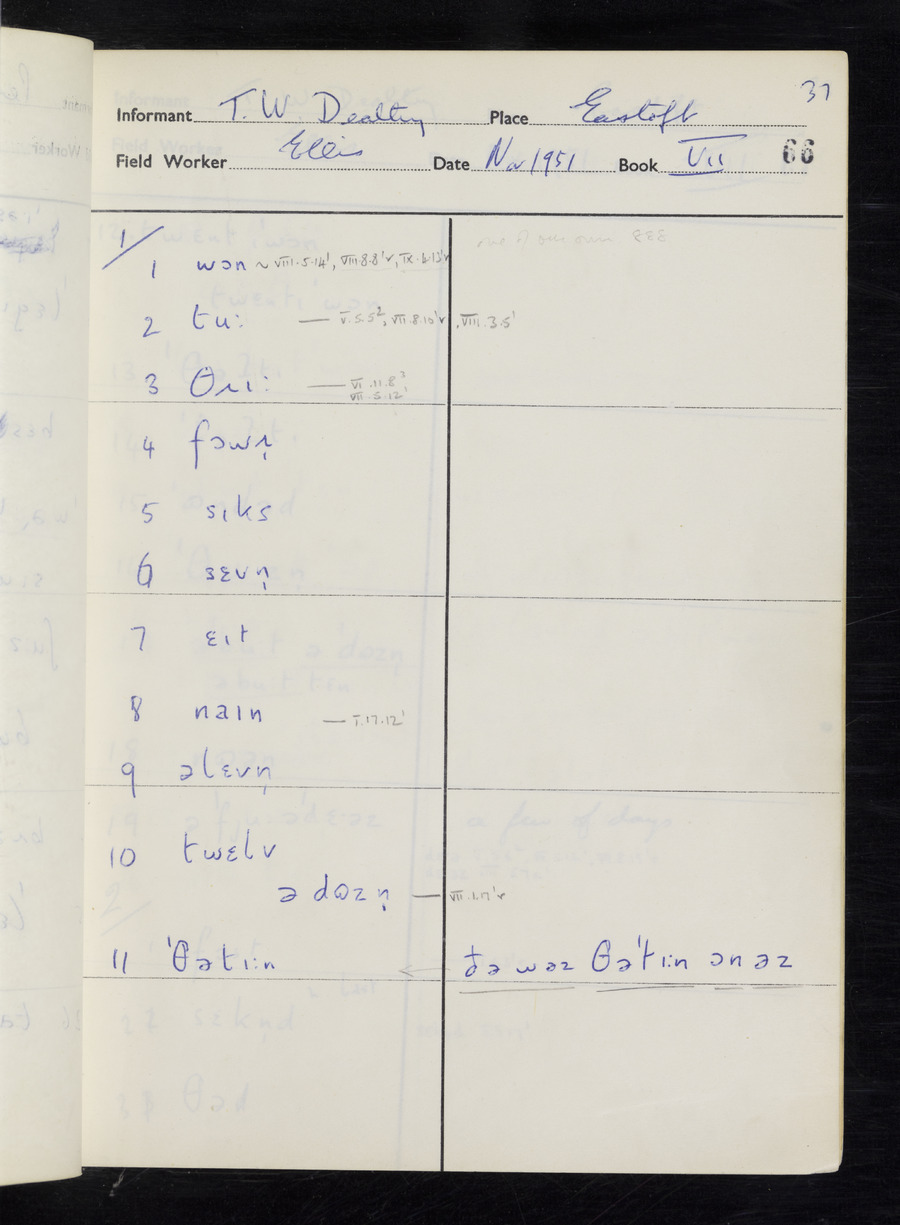 37
Informant T. W. Dealtry Place Eastoft
Field Worker Ellis Date Nov 1951 Book VII 66
1/
1 wɔn ~ VIII.5.14', VIII.8.8'v,
2 tu: — V.5.5², VII.8.10'v, VIII.3.5'
3 θɹɪ: — VI.11.8²
VII.5.12'
4 fɔwɹ̩
5 sɪks
6 sɛvn̩
7 ɛɪt
8 naɪn — I.17.12'
9 əlɛvn̩
10 twɛlv
ə dɒzn̩ — VII.1.17'v
11 'θətɪ:n ðə wəz θə'tɪ:n ɔn əz